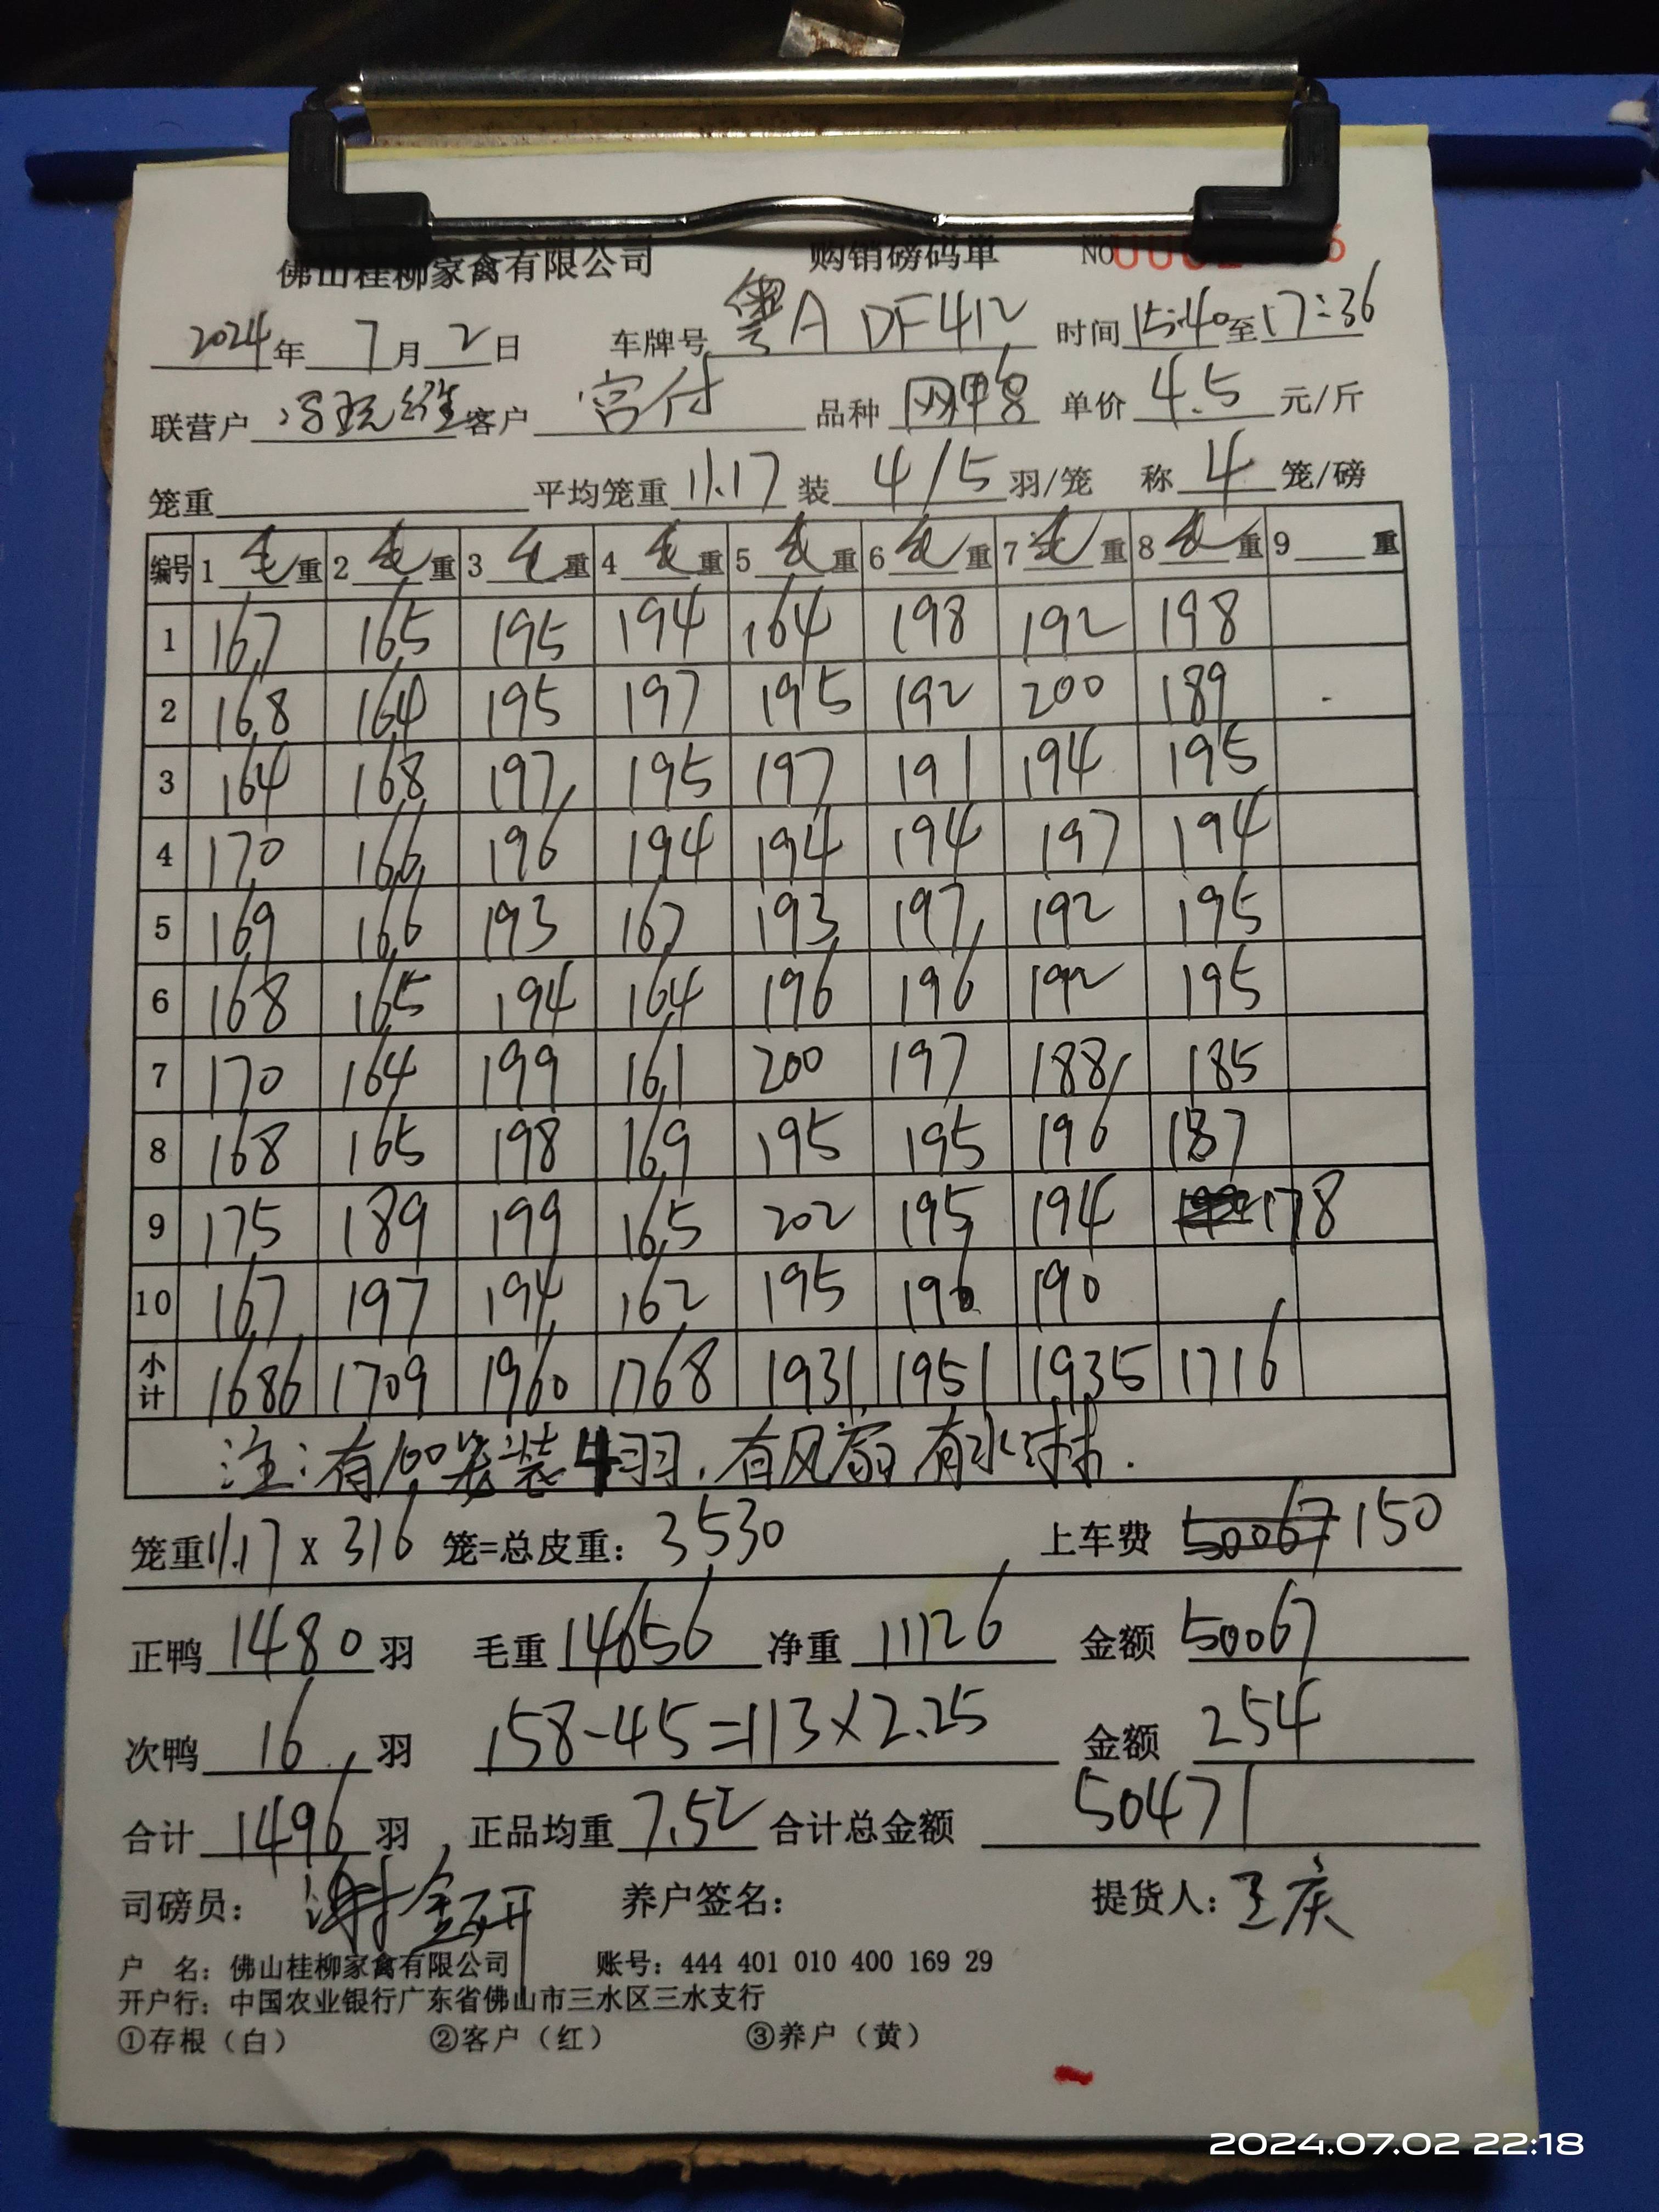 佛山桂柳家禽有限公司 购销磅码单 NO
2024年7月2日 车牌号 粤A DF412 时间 15:40至17:36
联营户 客户 宫付 品种 网鸭 单价 4.5 元/斤
笼重 平均笼重 11.17 装 4/5 羽/笼 称 4 笼/磅
编号 1毛重 2毛重 3毛重 4毛重 5毛重 6毛重 7毛重 8毛重 9重
1 167 165 195 194 164 198 192 198
2 168 164 195 197 195 192 200 189
3 164 168 197 195 197 191 194 195
4 170 166 196 194 194 194 197 194
5 169 166 193 167 193 197 192 195
6 168 165 194 164 196 196 192 195
7 170 164 199 161 200 197 188 185
8 168 165 198 169 195 195 196 187
9 175 189 199 165 202 195 194 178
10 167 197 194 162 195 196 190
小计 1686 1709 1960 1768 1931 1951 1935 1716
注:有100笼装4羽.有风扇 有水.
笼重11.17 x 316 笼=总皮重: 3530 上车费 50067 150
正鸭 1480 羽 毛重 14656 净重 11126 金额 50067
次鸭 16 羽 158-45=113×2.25 金额 254
合计 1496 羽 正品均重 7.52 合计总金额 50471
司磅员: 谢金研 养户签名: 提货人: 王庆
户 名: 佛山桂柳家禽有限公司 账号: 444 401 010 400 169 29
开户行: 中国农业银行广东省佛山市三水区三水支行
①存根（白） ②客户（红） ③养户（黄）
2024.07.02 22:18